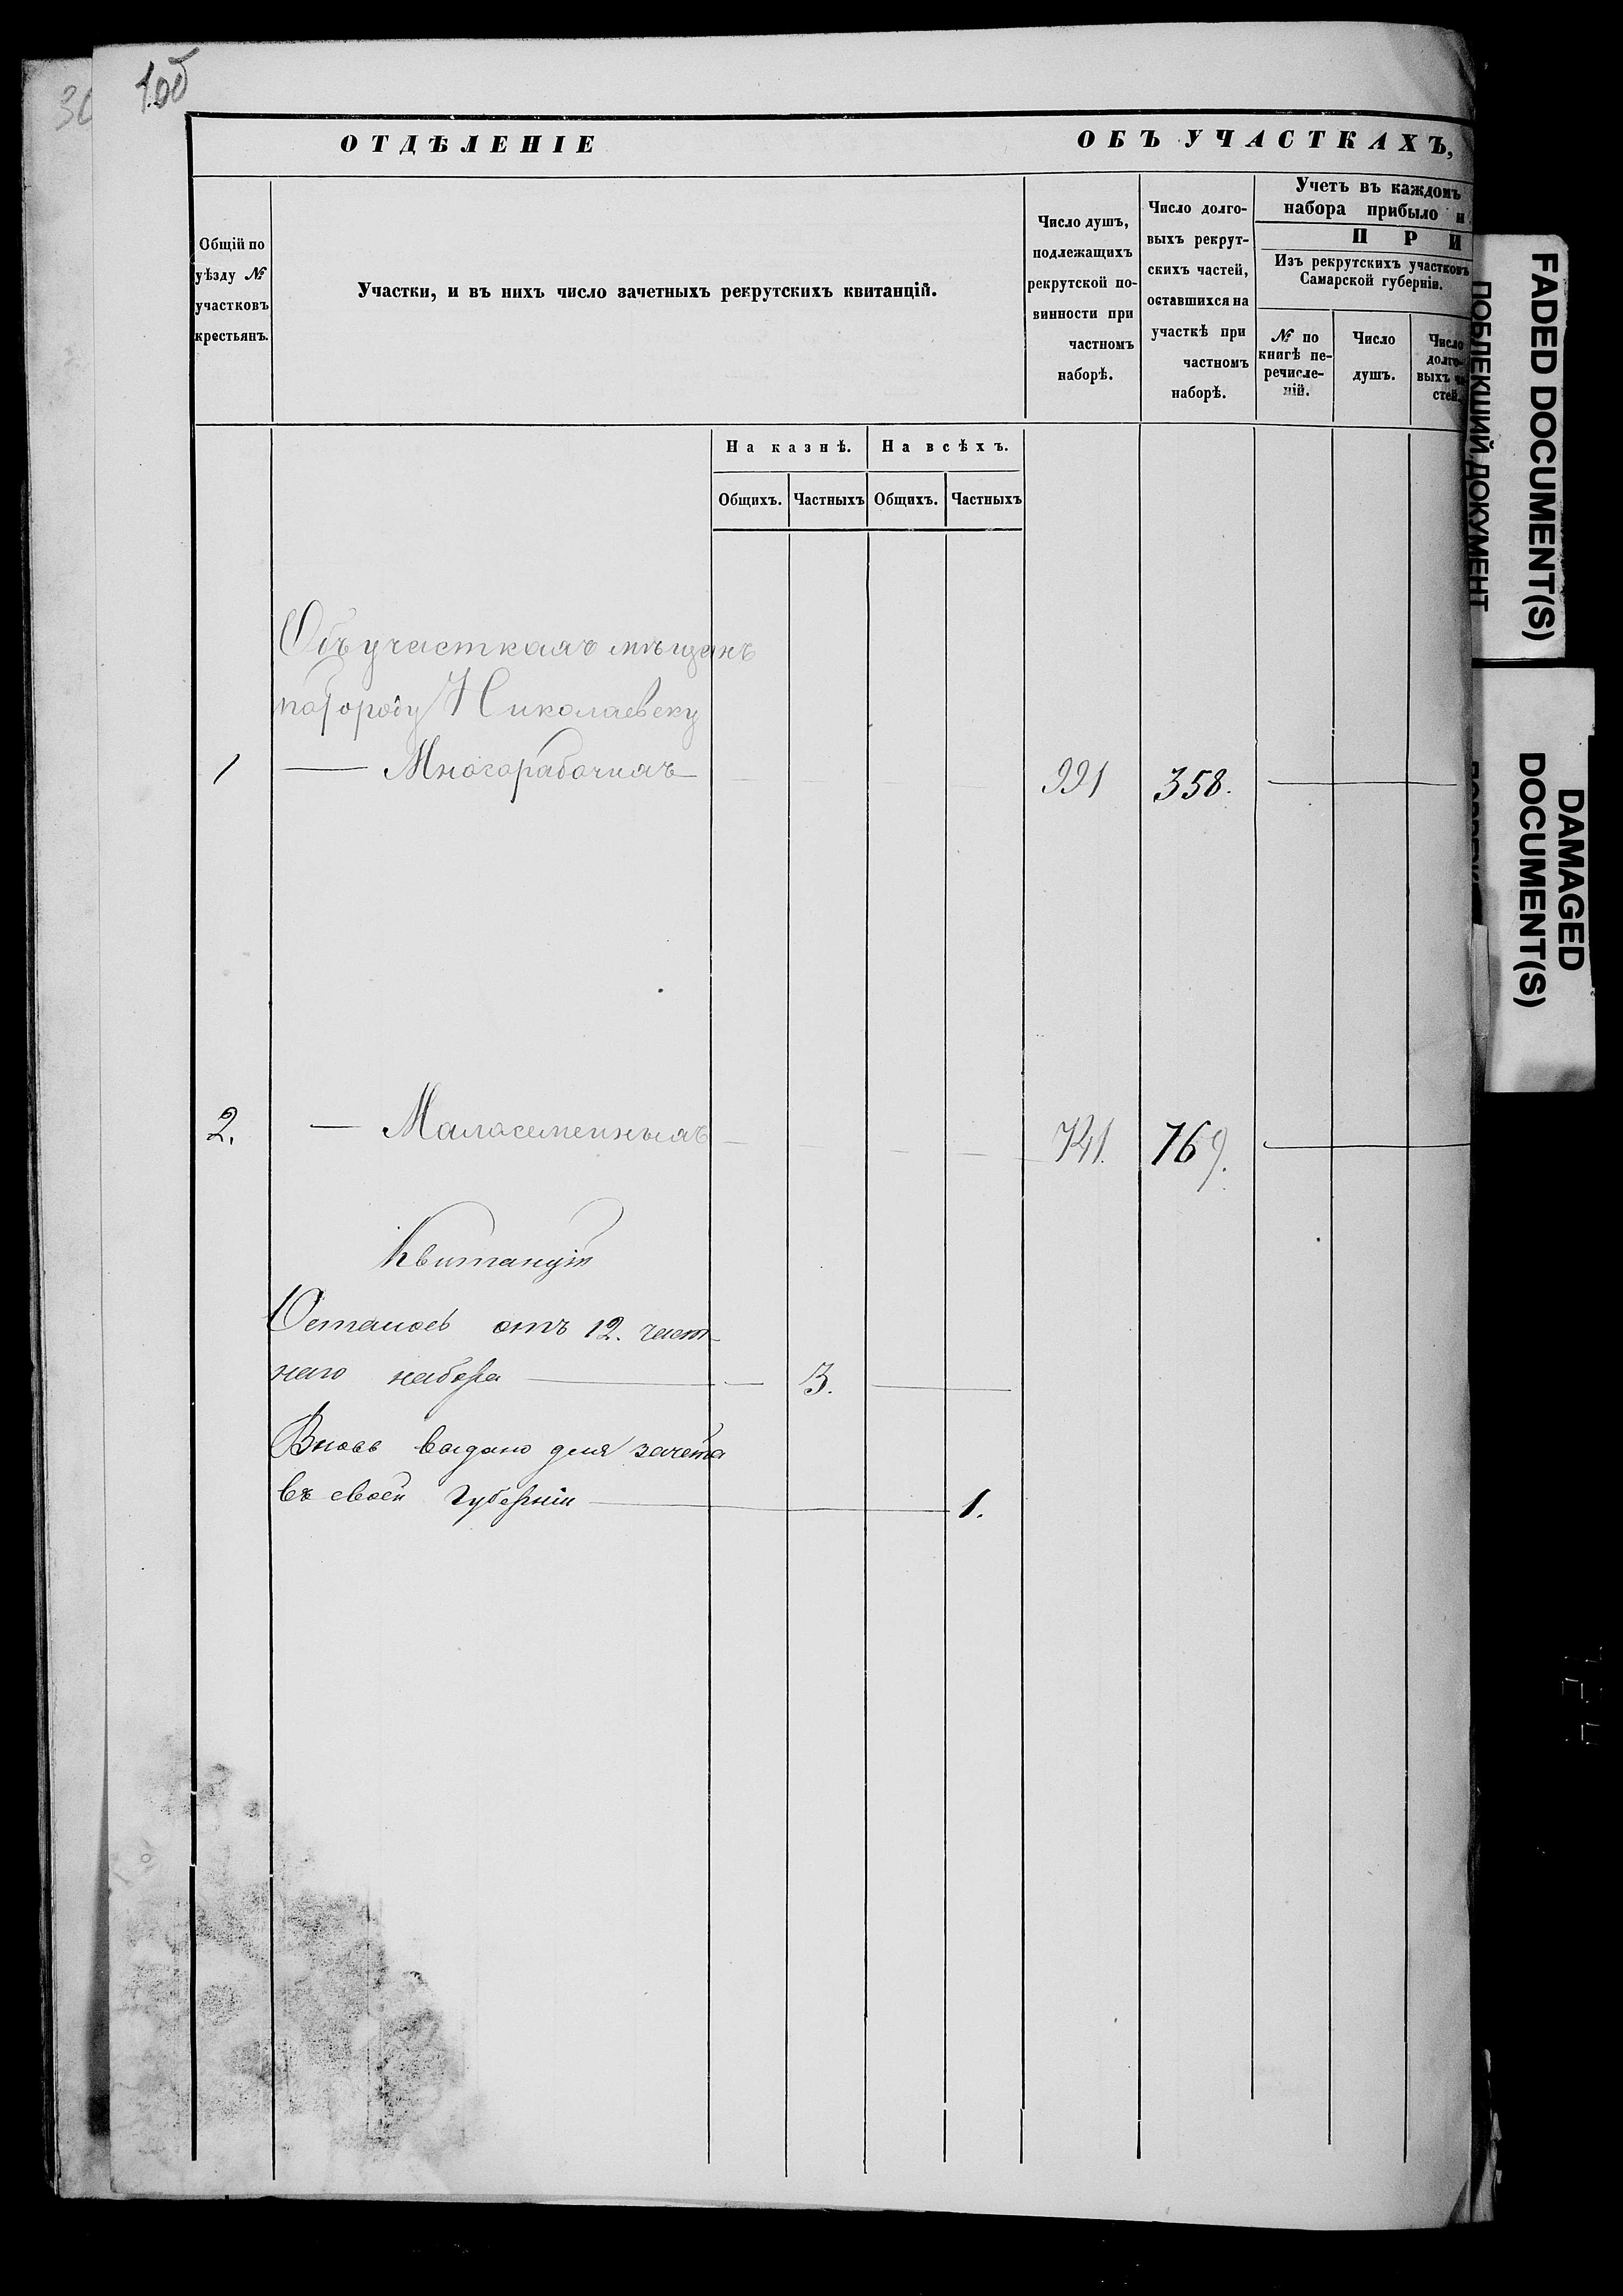 100
ОТДѢЛЕНІЕ ОБЪ УЧАСТКАХЪ,
Общій по уѣзду № участковъ крестьянъ.
Участки, и въ нихъ число зачетныхъ рекрутскихъ квитанцій.
Число душъ,
подлежащихъ
рекрутской по-
винности при
частномъ
наборѣ.
Число долго-
выхъ рекрут-
скихъ частей,
оставшихся на
участкѣ при
частномъ
наборѣ.
Учетъ въ каждомъ
набора прибыло и
ПРИ
Изъ рекрутскихъ участковъ
Самарской губерніи.
№ по
книгѣ пе-
речисле-
ній.
Число
душъ.
Число
долго-
выхъ ча-
стей.
На казнѣ. На всѣхъ.
Общихъ. Частныхъ Общихъ. Частныхъ
Объ участкахъ мѣщанъ
по городу Николаевску
1 — Многорабочихъ 991 358.
2. — Малосемейныхъ 741. 769.
Квитанцій
Осталось отъ 12. част-
наго набора — 3.
Вновь выдано для зачета
въ своей губерніи — 1.
FADED DOCUMENT(S)
ПОБЛЕКШИЙ ДОКУМЕНТ
DAMAGED
DOCUMENT(S)